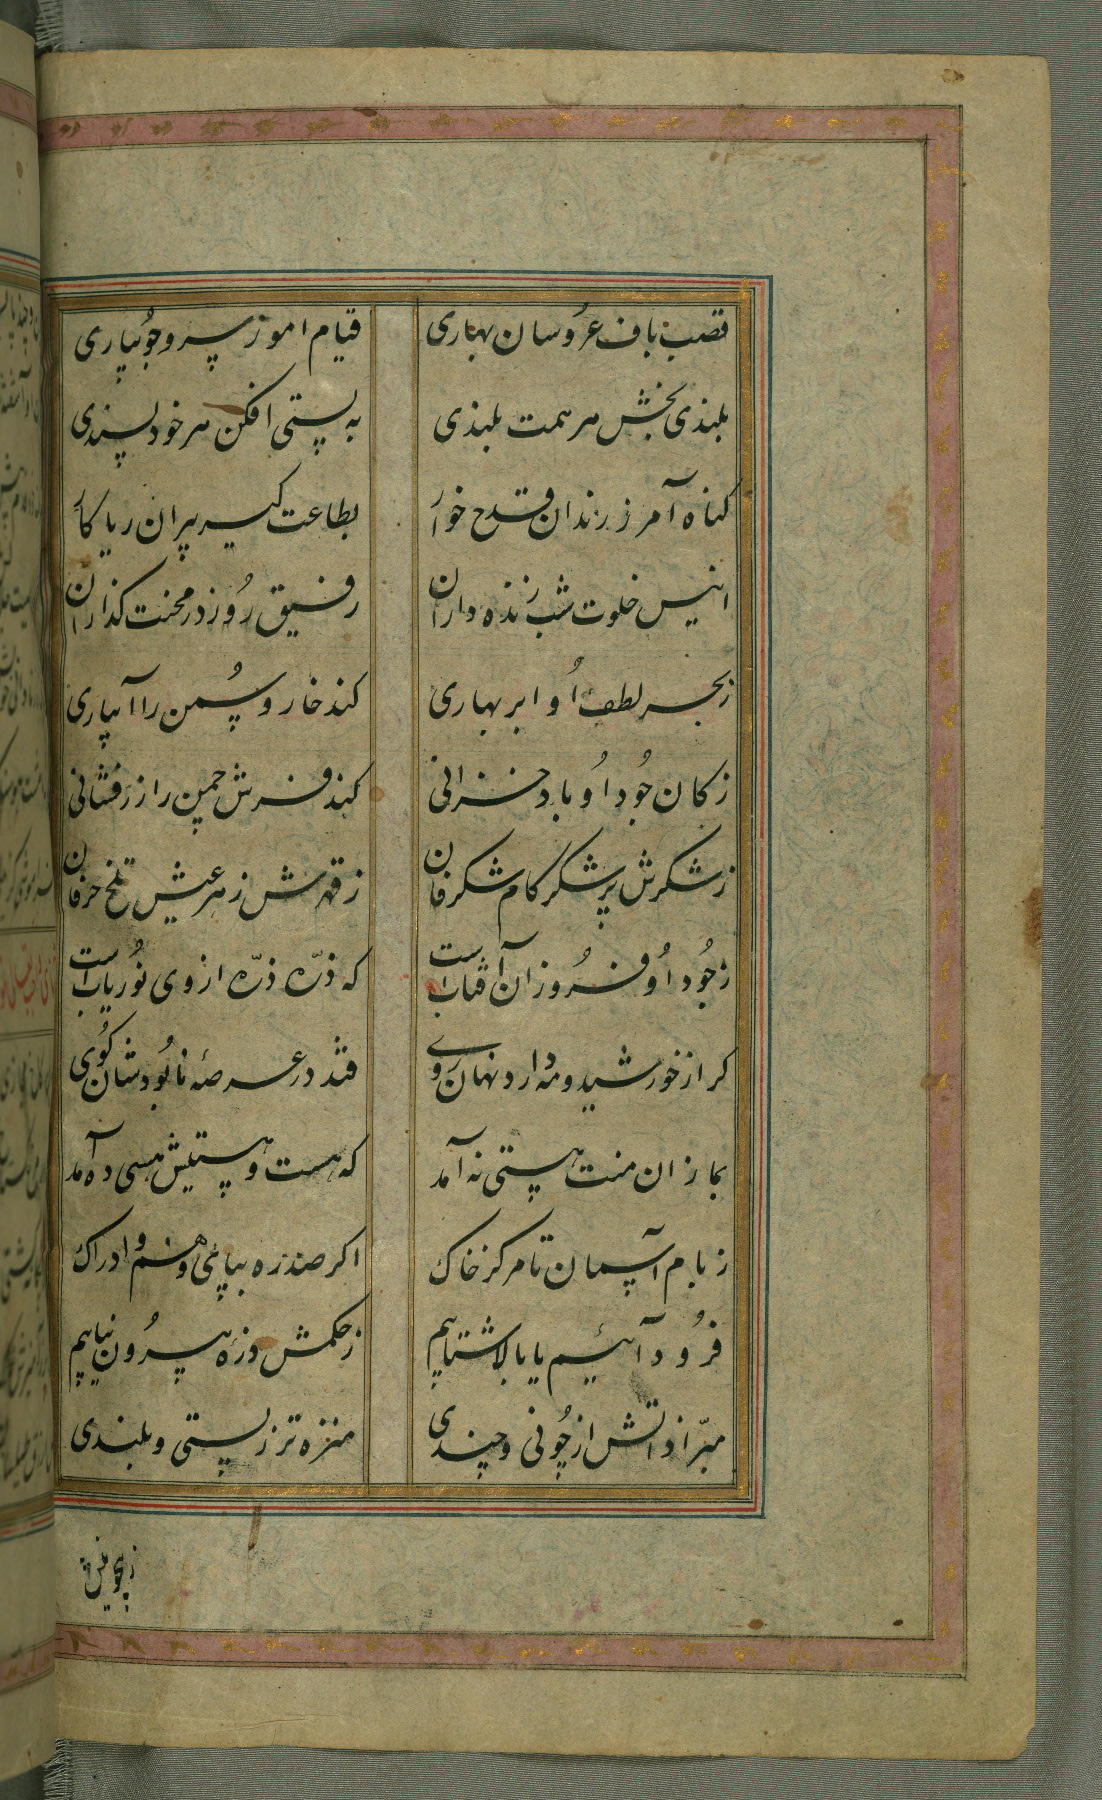 قصب باف عروسان بهاری
قیام اموز سرو جویباری
بلندی بخش هر همت بلندی
به پستی افکن هر خود پسندی
کناه آمرز رندان قدح خوار
بطاعت کیر پیران ریا کار
انیس خلوت شب زنده داران
رفیق روز در محنت کذاران
ز بحر لطف او ابر بهاری
کند خار و سمن را آبیاری
ز کان جود او باد خزانی
کند فرش چمن را زرفشانی
ز شکرش پر شکر کام شکرفان
ز قهرش زهر عیش تلخ حرفان
ز جود او فروزان آفتاب است
که ذره ذره از وی نور یاب است
کر از خورشید و مه دارد نهان روی
فتد در عرصه نابودشان کوی
بما زان منت هستی نه آمد
که هست و هستیش هستی ده آمد
ز بام آسمان تا مرکز خاک
اکر صد ره بپای وهم و ادراک
فرود آئیم یا بالا شتابیم
ز حکمش ذره بیرون نیابیم
مبرا ذاتش از چونی و چندی
منزه تر ز پستی و بلندی